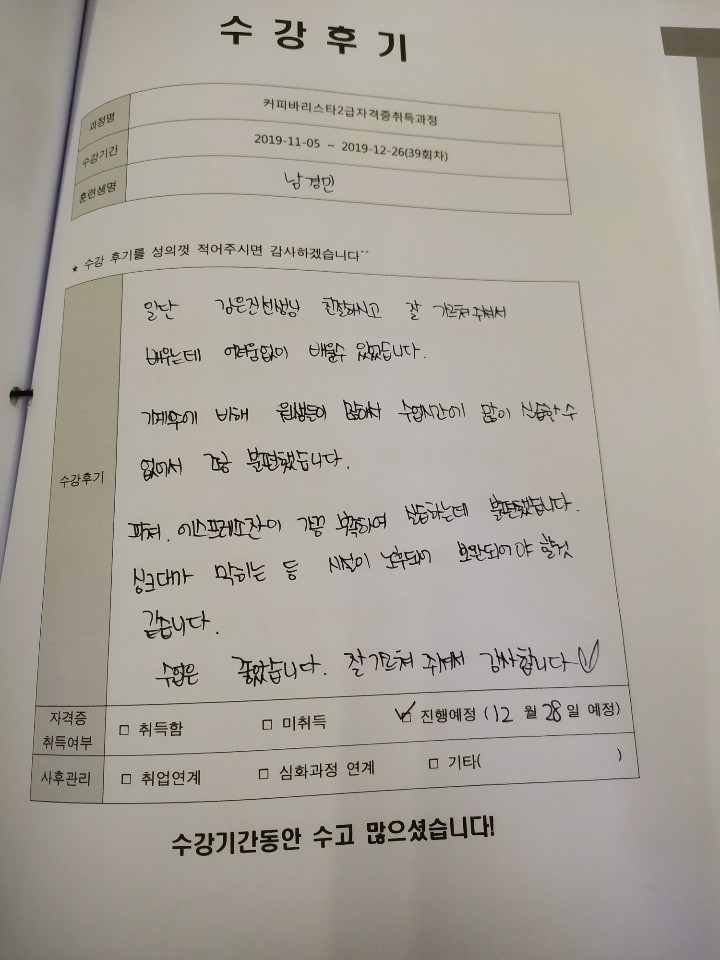 수강후기
과정명 커피바리스타2급자격증취득과정
수강기간 2019-11-05 ~ 2019-12-26(39회차)
훈련생명 남경민
★ 수강 후기를 성의껏 적어주시면 감사하겠습니다^^
일단 김은진선생님 친절하시고 잘 가르쳐주셔서
배우는데 어려움없이 배울수 있었습니다.
기계수에 비해 원생들이 많아서 수업시간에 많이 실습할 수
없어서 조금 불편했습니다.
수강후기
피쳐, 에스프레소잔이 가끔 부족하여 실습하는데 불편했습니다.
싱크대가 막히는 등 시설이 노후되어 보완되어야 할것
같습니다.
수업은 좋았습니다. 잘가르쳐 주셔서 감사합니다♡
자격증 취득여부 □ 취득함 □ 미취득 ☑ 진행예정 (12 월 28일 예정)
사후관리 □ 취업연계 □ 심화과정 연계 □ 기타( )
수강기간동안 수고 많으셨습니다!